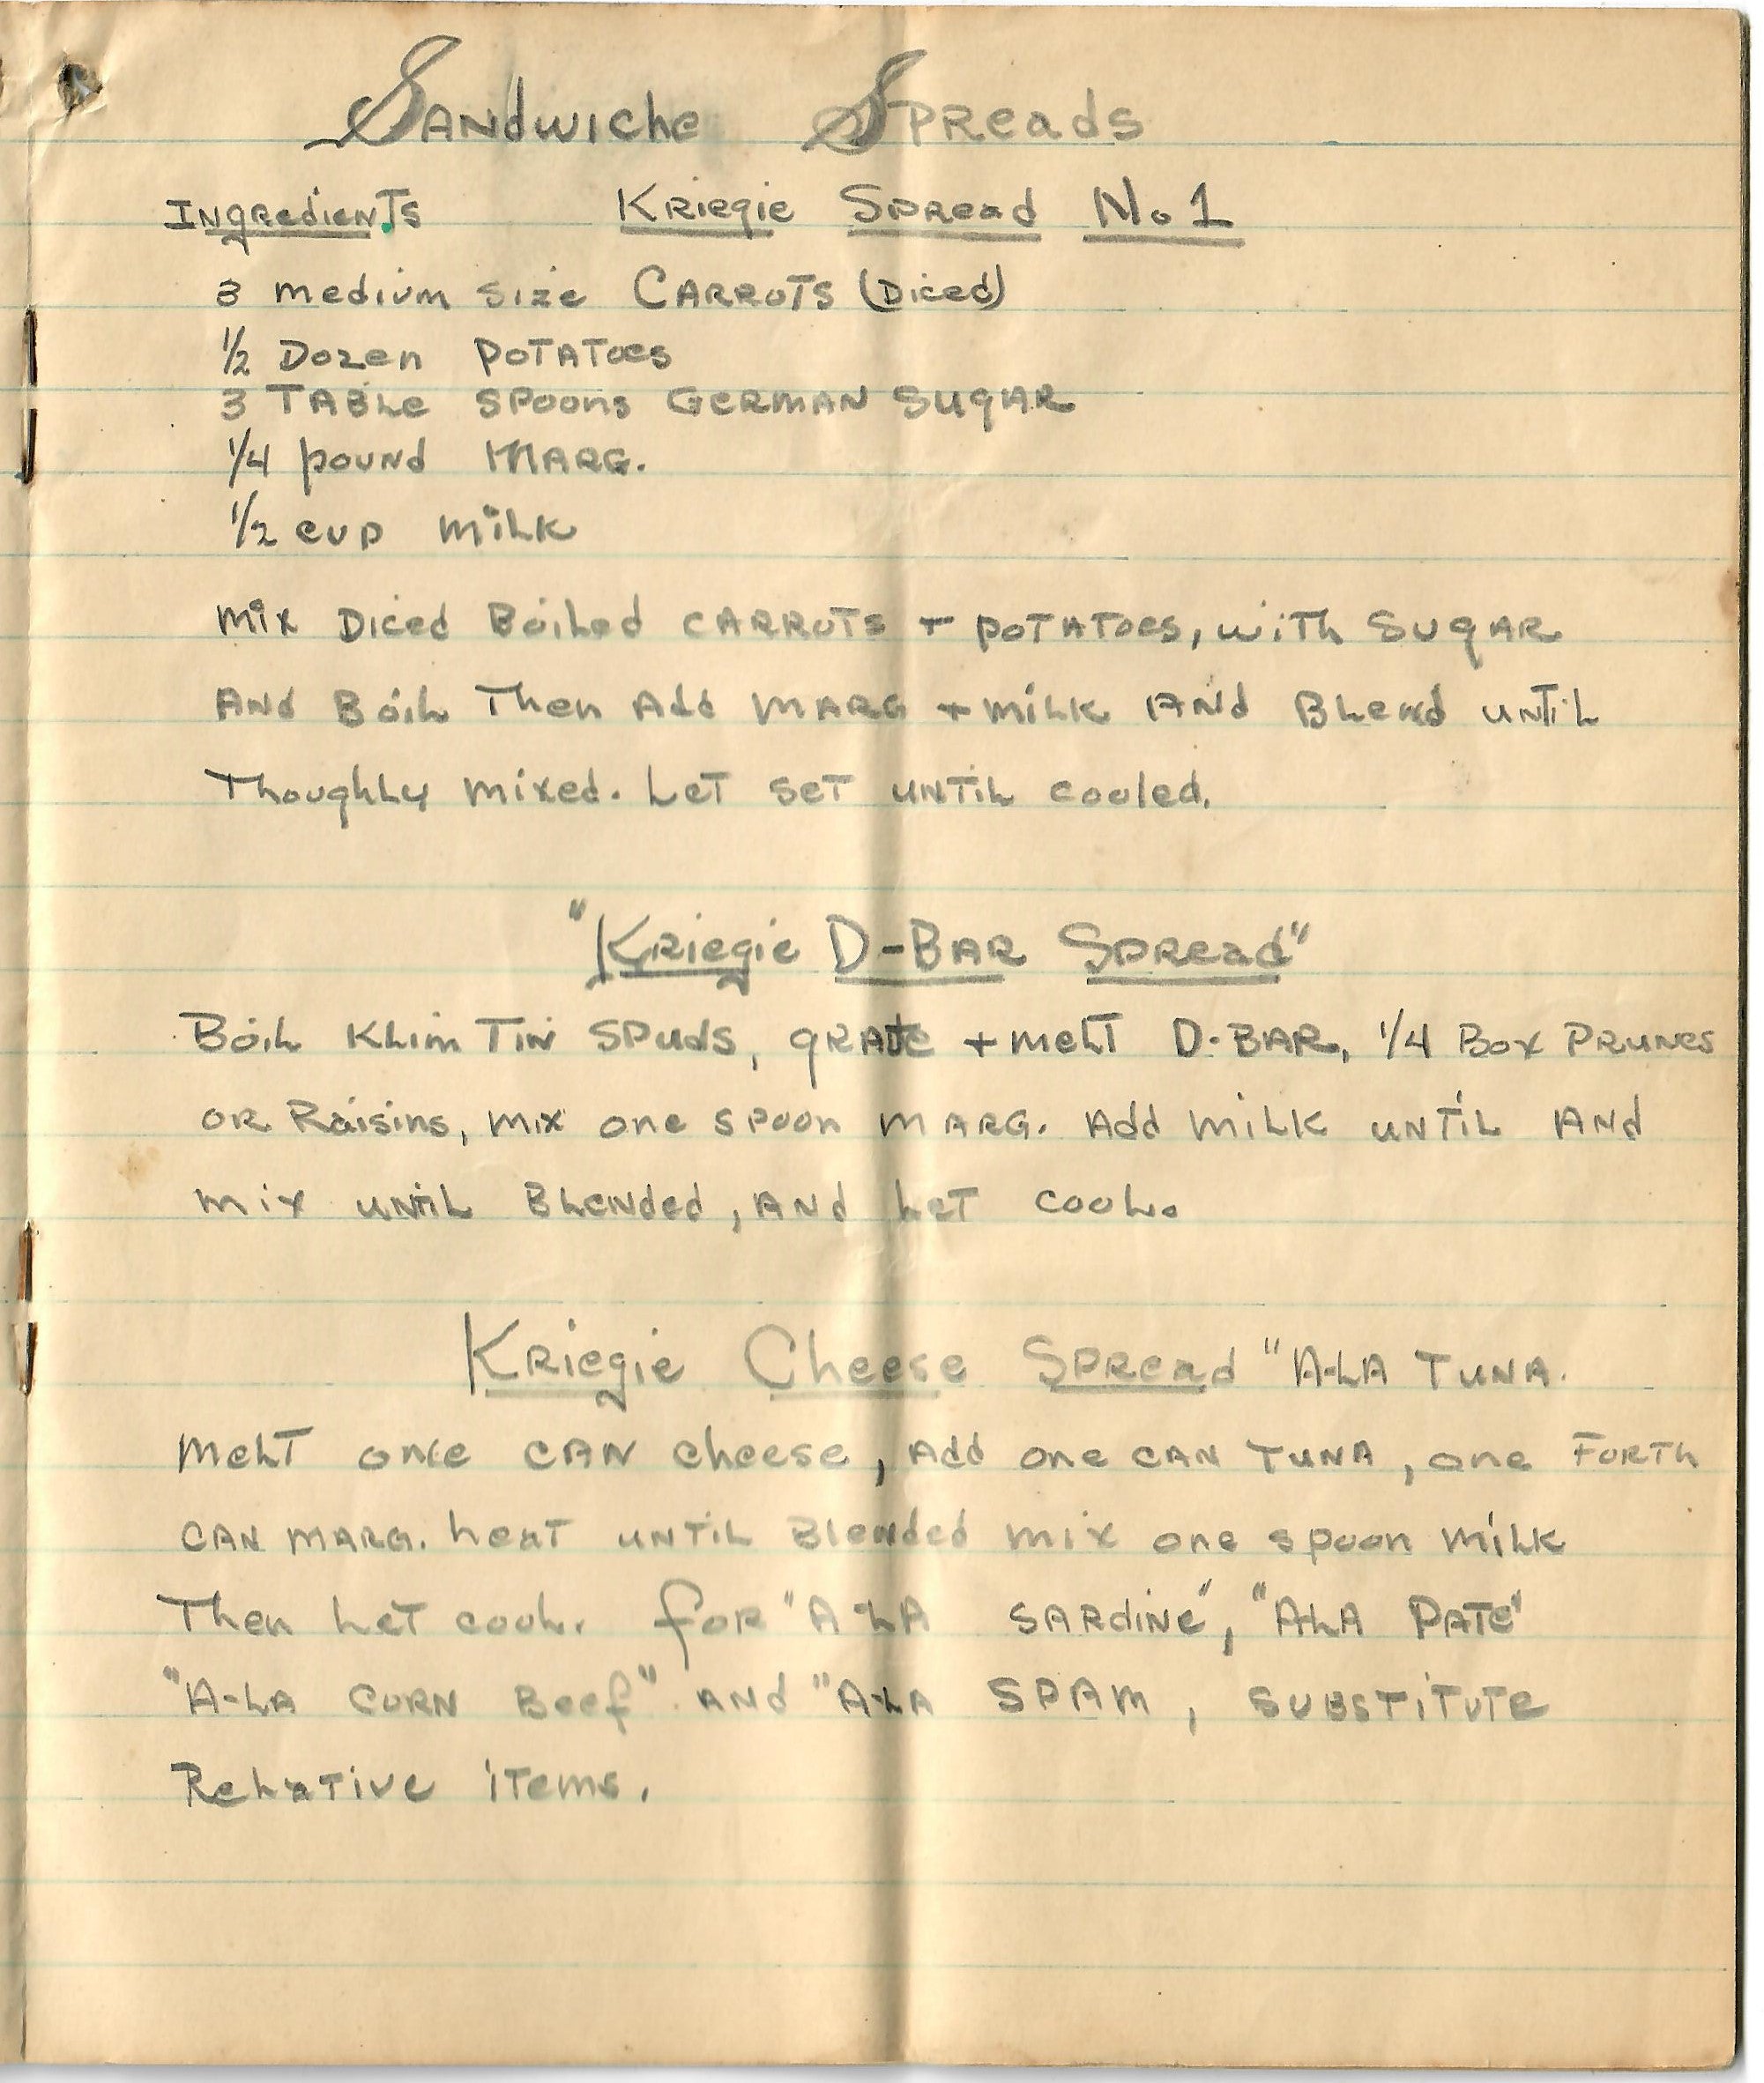 Sandwiche Spreads
Ingredients Kriegie Spread No 1
3 medium size Carrots (Diced)
1/2 Dozen potatoes
3 Table spoons German Sugar
1/4 pound Marg.
1/2 cup milk
mix Diced Boiled carrots + potatoes, with Sugar
And Boil Then Add marg + milk And Blend until
Thoughly mixed. Let set until cooled.
"Kriegie D-Bar Spread"
Boil Klim Tin Spuds, grate + melt D-BAR, 1/4 Box Prunes
or Raisins, mix one spoon marg. Add milk until And
mix until Blended, And Let cool.
Kriegie Cheese Spread "A-LA TUNA.
Melt one can cheese, Add one can Tuna, one forth
can marg. heat until Blended mix one spoon milk
Then Let cool. for "A-LA Sardine", "A-LA Pate"
"A-LA Corn Beef" And "A-LA SPAM, substitute
Relative items.